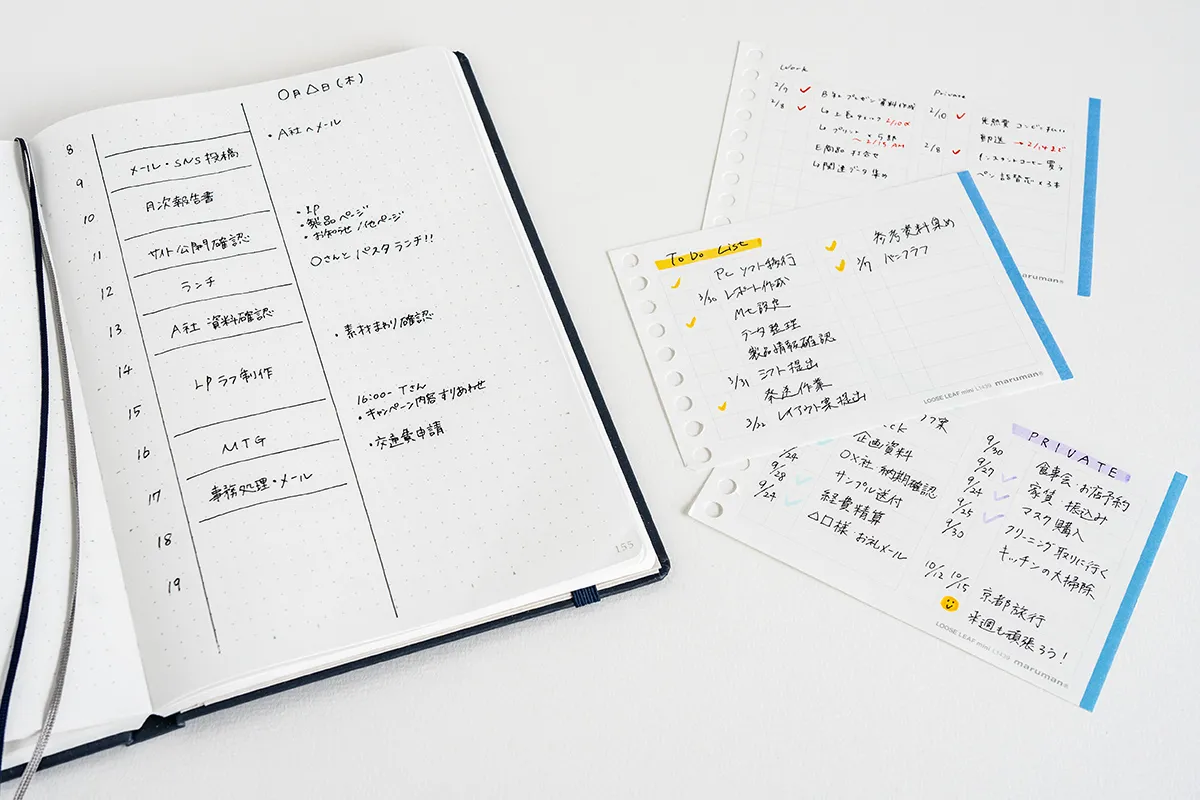 〇月△日(木)
8
メール・SNS投稿
・A社へメール
9
月次報告書
10
サイト公開/確認
・LP
・製品ページ
・お知らせ/他ページ
11
ランチ
〇さんと パスタランチ!!
12
A社 資料確認
・素材まわり確認
13
14
LPラフ制作
15
MTG
16:00- Tさん
・キャンペーン内容すりあわせ
16
事務処理・メール
・交通費申請
17
18
19
155
Work
2/7 B社プレゼン資料作成
2/8 上長チェック 2/10
プリント×5部
→2/15 AM
E商品 打合せ
関連データ集め
Private
2/10 光熱費 コンビニ払い
郵送 →2/14まで
2/8 インスタントコーヒー買う
ペン 詰替芯×3本
maruman®
To Do List
PC ソフト移行
3/30 レポート作成
MC設定
データ整理
製品情報確認
3/31 シフト提出
発送作業
3/32 レイアウト案提出
参考資料集め
3/17 パンフラフ
LOOSE LEAF mini L1439 maruman®
企画資料
9/24 OX社 納期確認
9/28 サンプル送付
9/24 経費精算
△□様 お礼メール
PRIVATE
9/30 食事会 お店予約
9/27 家賃 振込み
9/24 マスク購入
9/25 クリーニング取りに行く
9/30 キッチンの大掃除
10/12 10/15 京都旅行
来週も頑張ろう!
LOOSE LEAF mini L1439 maruman®